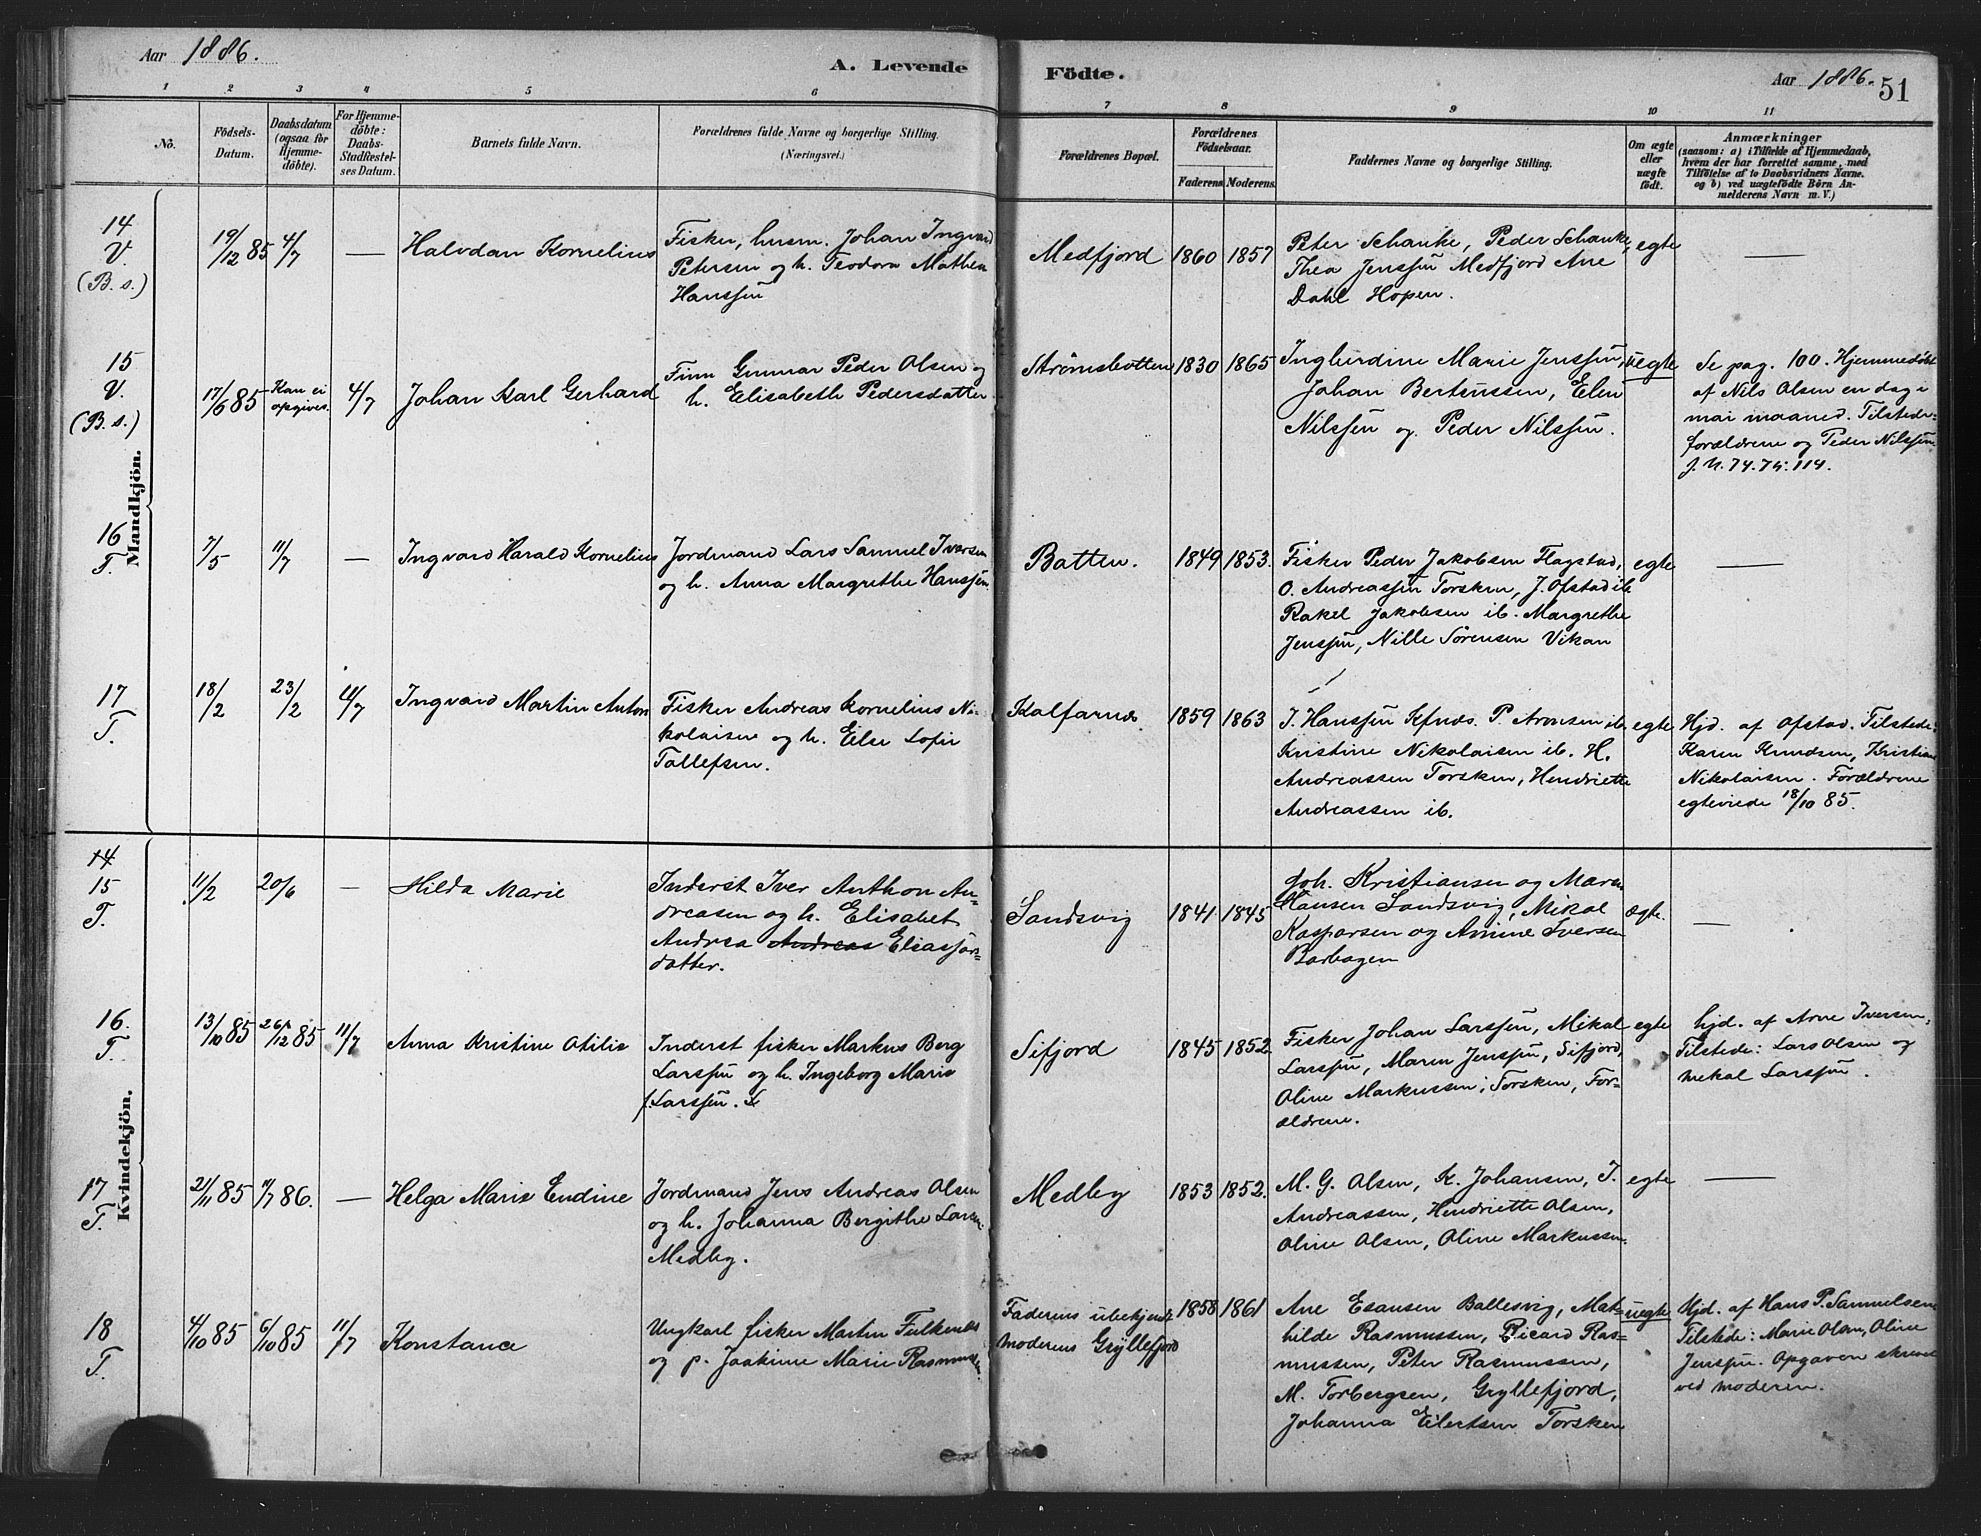 Aar 1886.
A. Levende Födte.
Aar 1886.
51
1 2 3 4 5 6 7 8 9 10 11
No.
Födsels-Datum.
Daabsdatum (ogsaa for Hjemme-döbte).
For Hjemme-döbte: Daabs-Stadfæstel-ses Datum.
Barnets fulde Navn.
Forældrenes fulde Navne og borgerlige Stilling.
(Næringsvei.)
Forældrenes Bopæl.
Forældrenes Födselsaar.
Faderens Moderens.
Faddernes Navne og borgerlige Stilling.
Om ægte eller uægte födt.
Anmærkninger
(saasom: a) i Tilfælde af Hjemmedaab,
hvem der har forrettet samme, med
Tilföielse af to Daabsvidners Navne.
og b) ved uægtefödte Börn An-
melderens Navn m. V.)
Mandkjön.
14
V
(B. s.)
19/12 85
4/7
—
Halvdan Kornelius
Fisker, husm. Johan Ingvard
Petersen og h. Teodora Mathea
Hanssen
Medfjord
1860
1857
Peter Schanke, Peder Schanke,
Thea Jenssen Medfjord Ane
Dahl Hopen.
egte
—
15
V.
(B. s.)
17/6 85
Kan ei
opgives.
4/7
Johan Karl Gerhard
Finn Gunnar Peder Olsen og
h. Elisabeth Pedersdatter
Strømsbotten
1830
1865
Ingburdine Marie Jenssen,
Johan Berteussen, Elen
Nilssen og Peder Nilssen.
uegte
Se pag. 100. Hjemmedøbt
af Nils Olsen en dag i
mai maaned. Tilstede:
forældrene og Peder Nilssen
J. N. 74. 75: 114.
16
T.
7/5
11/7
—
Ingvard Harald Kornelius
Jordmand Lars Samuel Iversen
og h. Anna Margrethe Hanssen.
Botten.
1849
1853.
Fisker Peder Jakobsen Flagstad,
O. Andreassen Torsken, J. Ofstad ib
Rakel Jakobsen ib. Margrethe
Jenssen, Nille Sørensen Vikan
egte
—
17
T.
18/2
23/2
11/7
Ingvard Martin Anton
Fisker Andreas Kornelius Ni-
kolaisen og h. Else Sofie
Tollefsen.
Kalfarnes
1859
1863
J. Hanssen Kfnds. P. Aronsen ib.
Kristine Nikolaisen ib. H.
Andreassen Torsken, Henriette
Andreassen ib.
egte
Hjd. af Ofstad. Tilstede:
Karen Knudsen, Kristian
Nikolaisen. Forældrene
egteviede 18/10 85.
Kvindekjön.
14
15
T.
11/2
20/6
—
Hilda Marie
Inderst Iver Anthon An-
dreasen og h. Elisabet
Andrea Andreas Eliassør=
datter.
Sandsvig
1841
1845
Joh. Kristiansen og Maren
Hansen Sandsvig, Mikal
Kasparsen og Amine Iversen
ægte.
—
16.
T.
13/10 85
26/12 85
11/7
Anna Kristine Otilie
Inderst fisker Markus Berg
Larssen og h. Ingeborg Marie
f. Larssen.
Sifjord
1845
1852.
Fisker Johan Larssen, Mikal
Larssen, Maren Jenssen, Sifjord,
Oline Markussen, Torsken, For-
ældrene.
egte
hjd. af Arne Iversen.
Tilstede: Lars Olsen og
Mekal Larssen.
17
T.
21/11 85
11/7 86.
—
Helga Marie Endine
Jordmand Jens Andreas Olsen
og h. Johanna Bergithe Larsen
Medby.
Medby
1853
1852.
M. G. Olsen, K. Johansen, I.
Andreassen, Hendriette Olsen,
Oline Olsen, Oline Markussen.
egte
—
18
T.
4/10 85
6/10 85
11/7
Konstance
Ungkarl fisker Martin Falkenås
og p. Joakime Marie Rasmussen
Faderens ubekjendt
moderens Gryllefjord
1858
1861
Ane Esaisen Ballesvig, Mat-
hilde Rasmussen, Ricard Ras=
mussen, Peter Rasmussen,
M. Torbergsen, Gryllefjord,
Johanna Eilertsen Torsken
uegte
Hjd. af Hans P. Samuelsen
Tilstede: Marie Olsen, Oline
Jenssen. Opgaven skrevet
ved moderen.